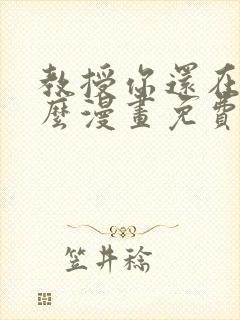 教授你還在
麼漫畫免費
笠井稔